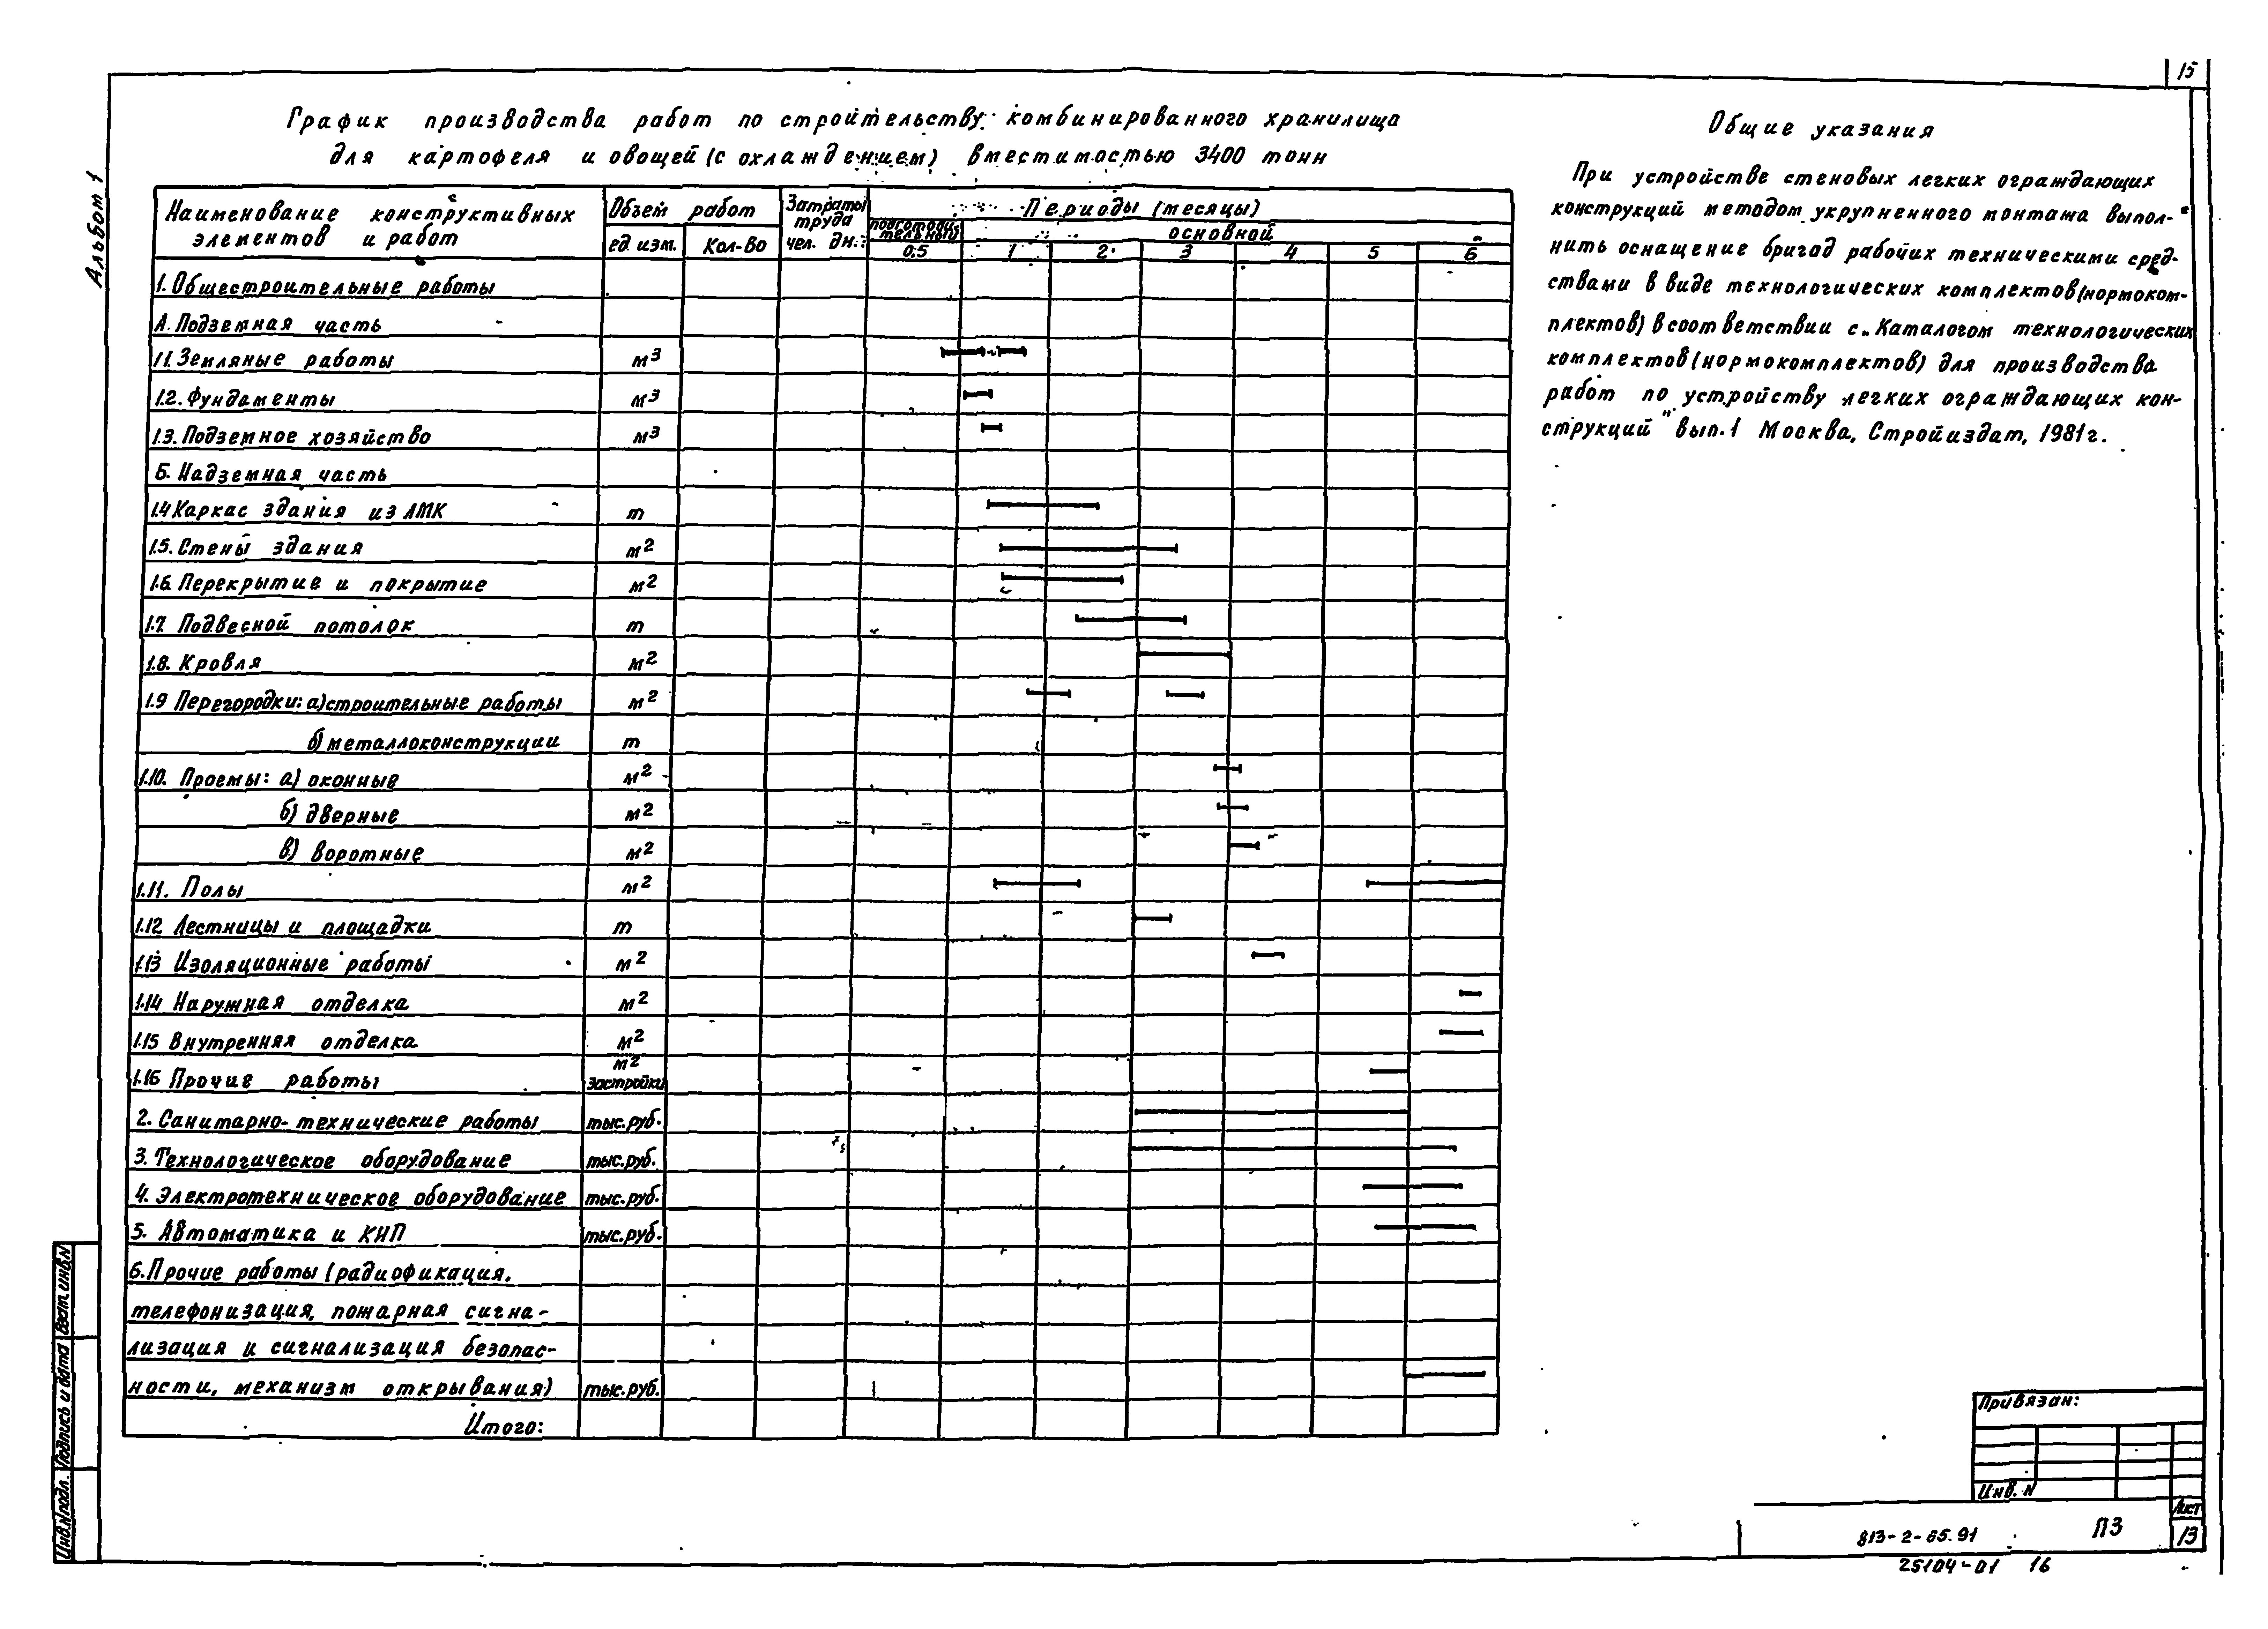 15
Альбом 1
График производства работ по строительству комбинированного хранилища
для картофеля и овощей (с охлаждением) вместимостью 3400 тонн
Наименование конструктивных элементов и работ
Объем работ
ед изм.
Кол-во
Затраты труда чел. дн.
Периоды (месяцы)
подготовительный
основной
0.5 1 2 3 4 5 6
1. Общестроительные работы
А. Подземная часть
1.1. Земляные работы м3
1.2. Фундаменты м3
1.3. Подземное хозяйство м3
Б. Надземная часть
1.4 Каркас здания из ЛМК т
1.5. Стены здания м2
1.6. Перекрытие и покрытие м2
1.7. Подвесной потолок т
1.8. Кровля м2
1.9 Перегородки: а) строительные работы м2
б) металлоконструкции т
1.10. Проемы: а) оконные м2
б) дверные м2
в) воротные м2
1.11. Полы м2
1.12 Лестницы и площадки т
1.13 Изоляционные работы м2
1.14 Наружная отделка м2
1.15 Внутренняя отделка м2
1.16 Прочие работы м2 застройки
2. Санитарно-технические работы тыс.руб.
3. Технологическое оборудование тыс.руб.
4. Электротехническое оборудование тыс.руб.
5. Автоматика и КИП тыс.руб.
6. Прочие работы (радиофикация,
телефонизация, пожарная сигна-
лизация и сигнализация безопас-
ности, механизм открывания) тыс.руб.
Итого:
Общие указания
При устройстве стеновых легких ограждающих
конструкций методом укрупненного монтажа выпол-
нить оснащение бригад рабочих техническими сред-
ствами в виде технологических комплектов (нормоком-
плектов) в соответствии с „Каталогом технологических
комплектов (нормокомплектов) для производства
работ по устройству легких ограждающих кон-
струкций" вып.1 Москва, Стройиздат, 1981г.
Привязан:
Инв. N
813-2-65.91
ПЗ
Лист
13
25104-01 16
Взам. инв.N
Подпись и дата
Инв.N подл.